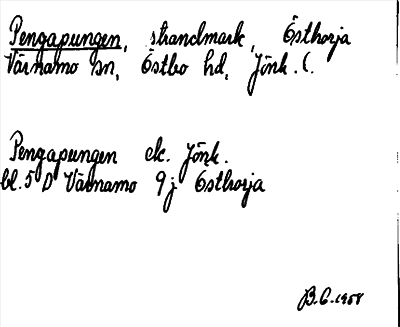 Pengapungen, strandmark, Östhorja
Värnamo sn, Östbo hd, Jönk. l.
Pengapungen ek. Jönk.
bl. 5 D Värnamo 9 j Östhorja
B.C. 1958